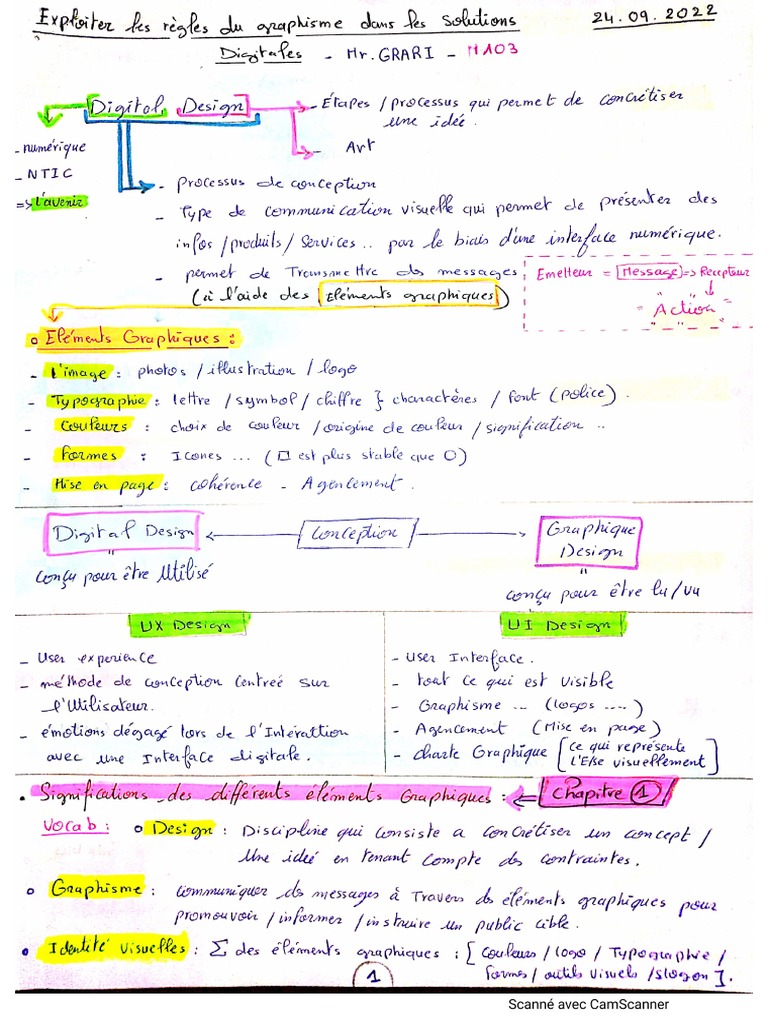 Exploiter les règles du graphisme dans les Solutions
24.09.2022
Digitales - Mr. GRARI - M103
Digital Design
- Étapes / processus qui permet de concrétiser
une idée.
- Art
- numérique
- NTIC
=> l'avenir
- Processus de conception
- Type de communication visuelle qui permet de présenter des
infos / produits / services .. par le biais d'une interface numérique.
- permet de Transmettre des messages
(à l'aide des Eléments graphiques)
Emetteur = Message => Récepteur
" Action "
Eléments Graphiques :
- L'image : photos / illustration / logo
- Typographie : lettre / symbol / chiffre } charactères / font (police).
- Couleurs : choix de couleur / origine de couleur / signification ..
- formes : Icones ... (□ est plus stable que O)
- Mise en page : cohérence - Agencement.
Digital Design
Conception
Graphique
Design
conçu pour être Utilisé
conçu pour être lu/vu
UX Design
- User experience
- méthode de conception centreé sur
l'Utilisateur.
- émotions dégagé lors de l'Intéraction
avec une Interface digitale.
UI Design
- User Interface.
- tout ce qui est visible
- Graphisme ... (logos ....)
- Agencement (Mise en page)
- charte Graphique [ce qui représente
l'Ese visuellement]
• Significations des différents éléments Graphiques : Chapitre 1
Vocab : o Design : Discipline qui consiste a concrétiser un concept /
Une ideé en tenant compte des contraintes.
o Graphisme : communiquer des messages à Travers des éléments graphiques pour
promouvoir / informer / instruire un public cible.
• Identité Visuelles : Σ des éléments graphiques : [Couleurs / logo / Typographie /
formes / outils visuels / slogon].
1
Scanné avec CamScanner